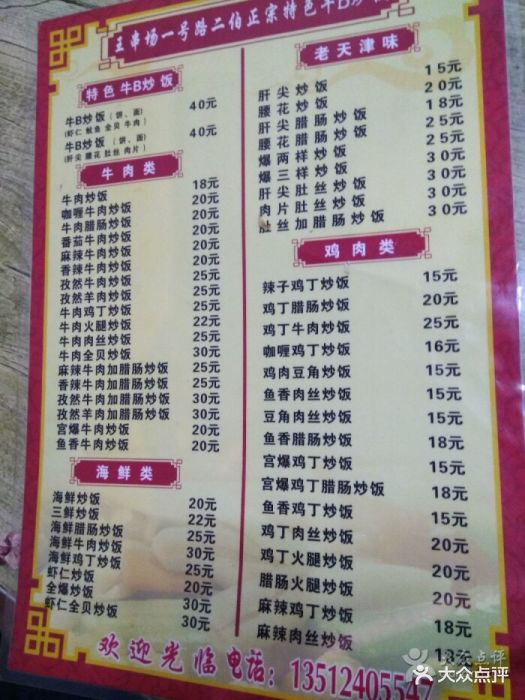 王串场一号路二伯正宗特色牛B炒
特色牛B炒饭
牛B炒饭（饼、面） 40元
(虾仁 鱿鱼 全贝 牛肉)
牛B炒饭（饼、面） 40元
(肝尖 腰花 肚丝 肉片)
牛肉类
牛肉炒饭 18元
咖喱牛肉炒饭 20元
牛肉腊肠炒饭 20元
番茄牛肉炒饭 20元
麻辣牛肉炒饭 20元
香辣牛肉炒饭 20元
孜然牛肉炒饭 25元
孜然羊肉炒饭 25元
牛肉鸡丁炒饭 25元
牛肉火腿炒饭 22元
牛肉肉丝炒饭 25元
牛肉全贝炒饭 30元
麻辣牛肉加腊肠炒饭 25元
香辣牛肉加腊肠炒饭 25元
孜然牛肉加腊肠炒饭 30元
孜然羊肉加腊肠炒饭 30元
宫爆牛肉炒饭 20元
鱼香牛肉炒饭 20元
海鲜类
海鲜炒饭 20元
三鲜炒饭 22元
海鲜腊肠炒饭 25元
海鲜牛肉炒饭 30元
海鲜鸡丁炒饭 25元
虾仁炒饭 20元
全爆炒饭 30元
虾仁全贝炒饭 30元
老天津味
肝尖炒饭 15元
腰花炒饭 20元
肝尖腊肠炒饭 18元
腰花腊肠炒饭 25元
爆两样炒饭 25元
爆三样炒饭 30元
肝尖肚丝炒饭 30元
肉片肚丝炒饭 30元
肚丝加腊肠炒饭 30元
鸡肉类
辣子鸡丁炒饭 15元
鸡丁腊肠炒饭 20元
鸡丁牛肉炒饭 25元
咖喱鸡丁炒饭 16元
鸡肉豆角炒饭 15元
鱼香肉丝炒饭 15元
豆角肉丝炒饭 15元
鱼香腊肠炒饭 18元
宫爆鸡丁炒饭 15元
宫爆鸡丁腊肠炒饭 18元
鱼香鸡丁炒饭 15元
鸡丁肉丝炒饭 20元
鸡丁火腿炒饭 20元
腊肠火腿炒饭 20元
麻辣鸡丁炒饭 18元
麻辣肉丝炒饭 18元
欢迎光临 电话：1351240554
大众点评